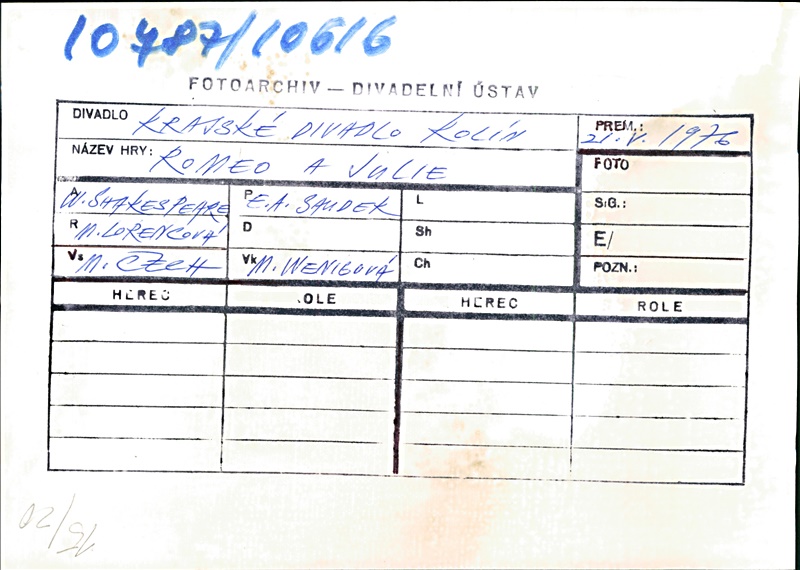 10787/10616
FOTOARCHIV — DIVADELNÍ ÚSTAV
DIVADLO KRAJSKÉ DIVADLO KOLÍN
PREM.: 21.V. 1976
NÁZEV HRY: ROMEO A JULIE
FOTO
A W. SHAKESPEARE
P E.A. SAUDEK
L
SIG.:
R M. LORENCOVÁ
D
Sh
E/
Vs M. CZECH
Vk M. WENIGOVÁ
Ch
POZN.:
HEREC OLE HEREC ROLE